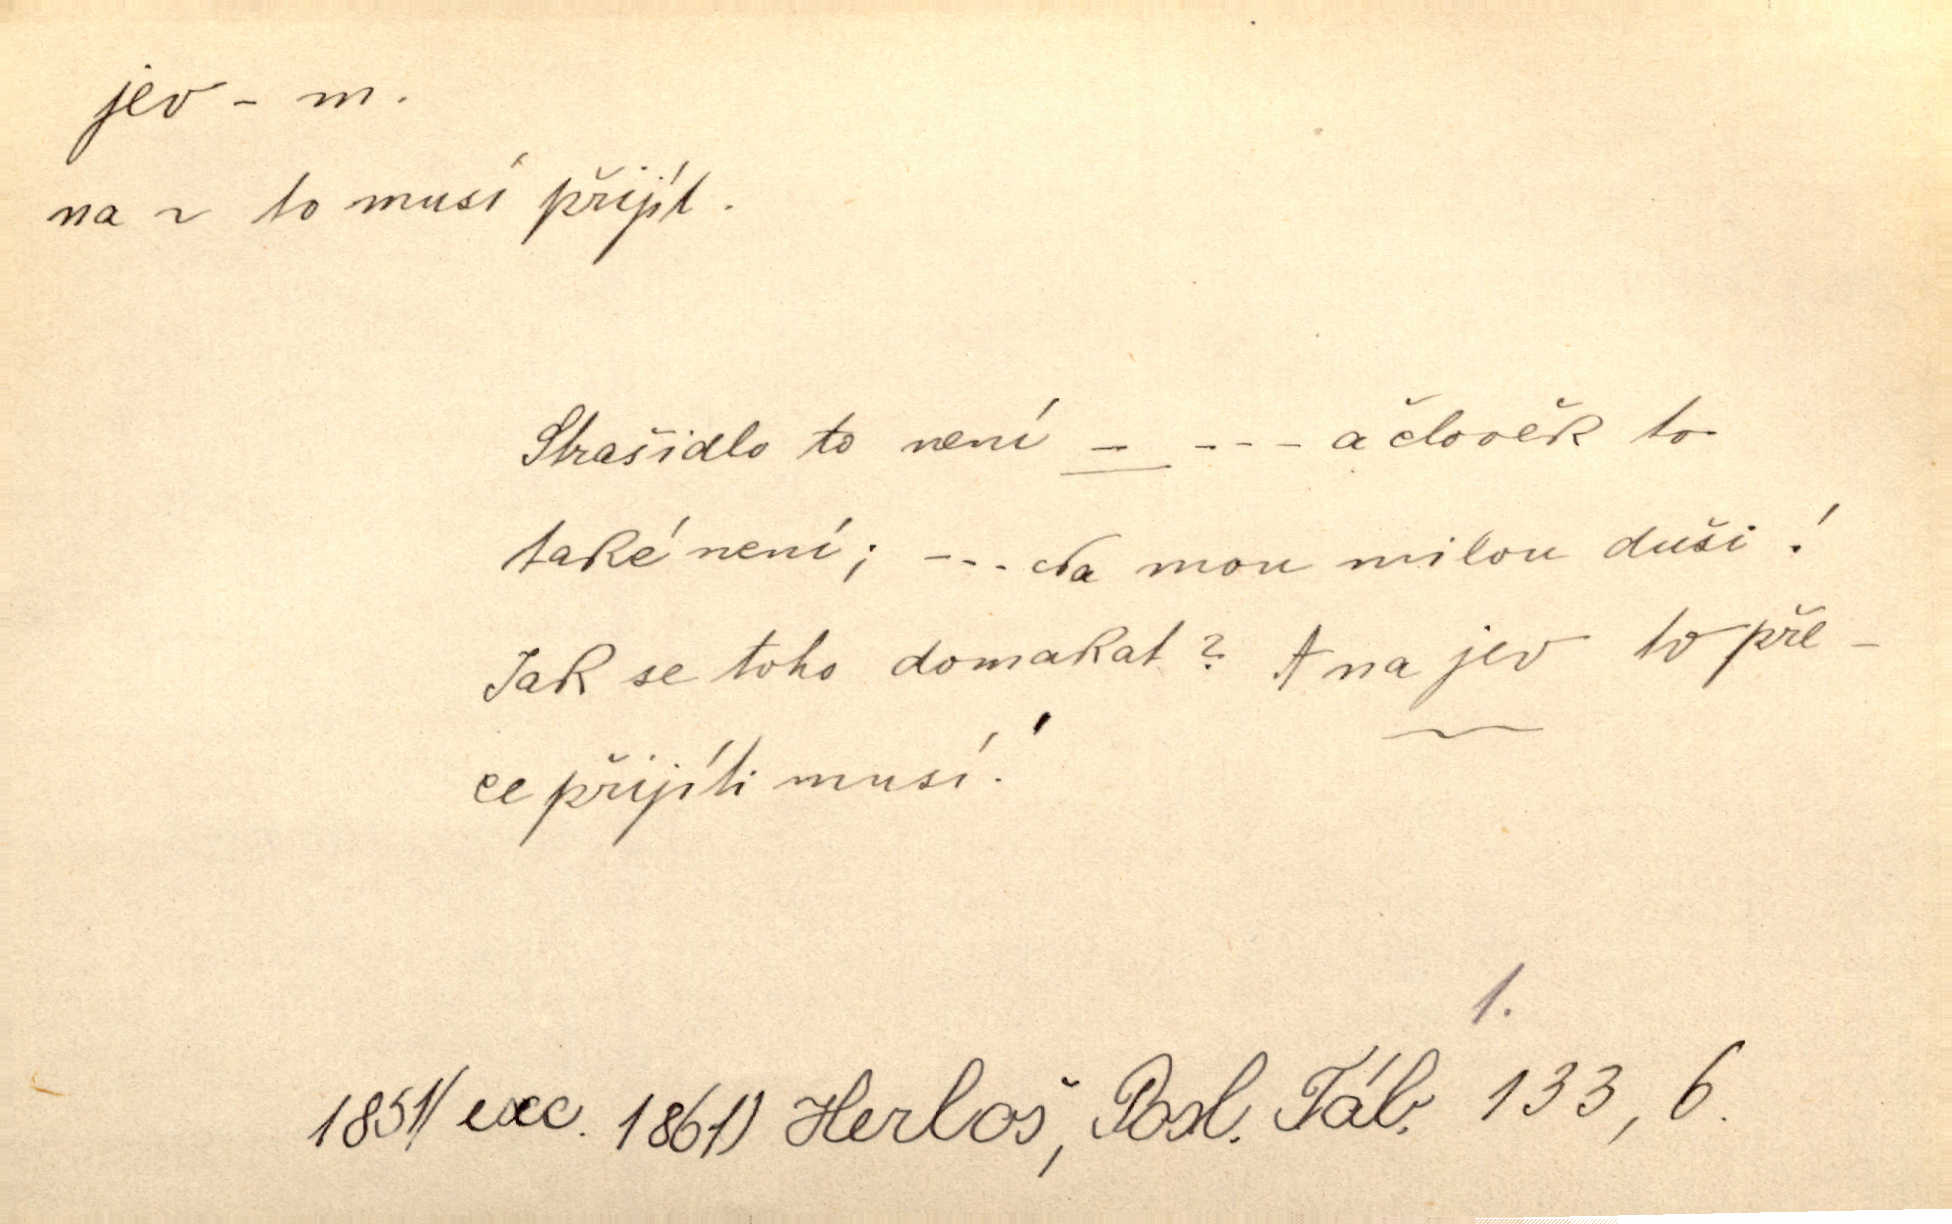 jev - m.
na ~ to musí přijít.
Strašidlo to není – - - - a člověk to
také není; - - - Na mou milou duši!
Jak se toho domakat? A na jev to pře-
ce přijíti musí!
1.
1851/ exc. 1861) Herloš, Posl. Táb. 133, 6.